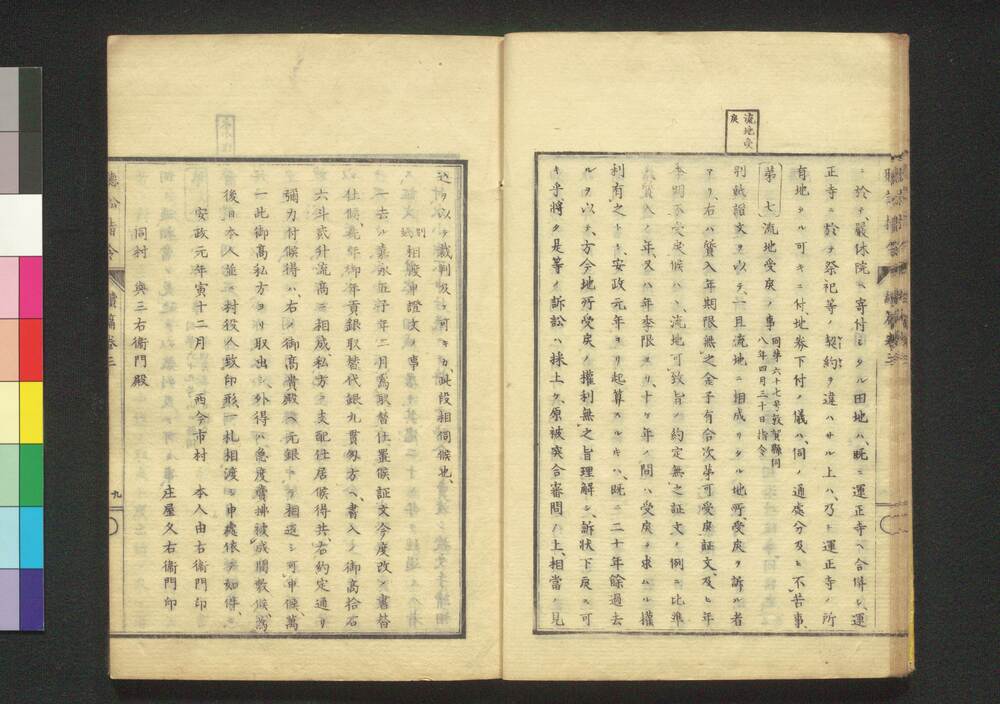 流地受戻
ニ於テ、嚴休院ヘ寄付シタル田地ハ、既ニ運正寺ヘ合併シ、運
正寺ニ於テ祭祀等ノ契約ヲ違ハサル上ハ、乃ト運正寺ノ所
有地タル可キニ付、地券下付ノ儀ハ、伺ノ通處分及ヒ不苦事、
第七 流地受戻ノ事 同第六十七号敦賀縣伺 八年四月三十日指令
別紙證文ヲ以テ、一旦流地ニ相成リタル地所受戻ヲ訴ル者
アリ、右ハ質入年期限無之金子有合次第可受戻証文、及ヒ年
季明不受戻候ハヽ、流地可致旨ノ約定無之証文ノ例ニ比準
質入ノ年、又ハ年季限ヨリ、十ケ年ノ間ハ受戻ヲ求ムル權
利有之トキ、安政元年ヨリ起算スルキハ、既ニ二十年餘過去
ルヲ以テ、方今地所受戻ノ權利無之旨理解シ、訴状下戻ス可
キ乎、將タ是等ノ訴訟ハ採上ケ、原被突合審問ノ上、相當ノ見
込ヲ以テ裁判及フ可キカ、此段相伺候也、
別紙 相渡申證文之事
一去ル嘉永五子年二月爲取替仕置候証文今度改メ書替
仕候、亮年御年貢銀取替代銀九貫匁方ヘ、書入之御高拾石
六斗貳升流高ニ相成、私方之支配住居候得共、右約定通リ
彌カ付候得ハ、右ノ御高貴殿ヘ元銀ヲ以テ相返シ可申候、萬
一此御高私方ヨリ取出シ外得ハ急度賣拂被成間敷候、爲
後日本人並ニ村役人致印形一札相渡シ申處依テ如件、
安政元年寅十二月 西今市村 本人由右衞門印
庄屋久右衞門印
同村 與三右衞門殿
續篇卷三
九